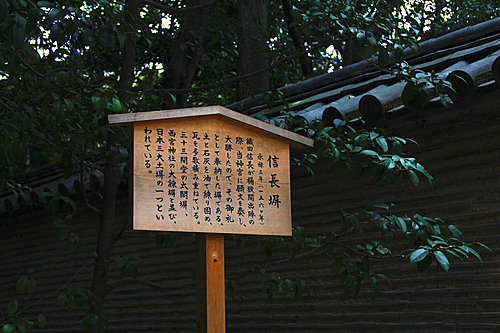 信長塀
永禄三年(一五六〇年)
織田信長が桶狭間出陣の
際、当神社に願文を奏し
大勝したので、その御礼
として奉納した塀である。
土と石灰を油で練り固め、
瓦を多数積み重ねている。
三十三間堂の太閤塀、
西宮神社の大練塀と並び、
日本三大土塀の一つとい
われている。